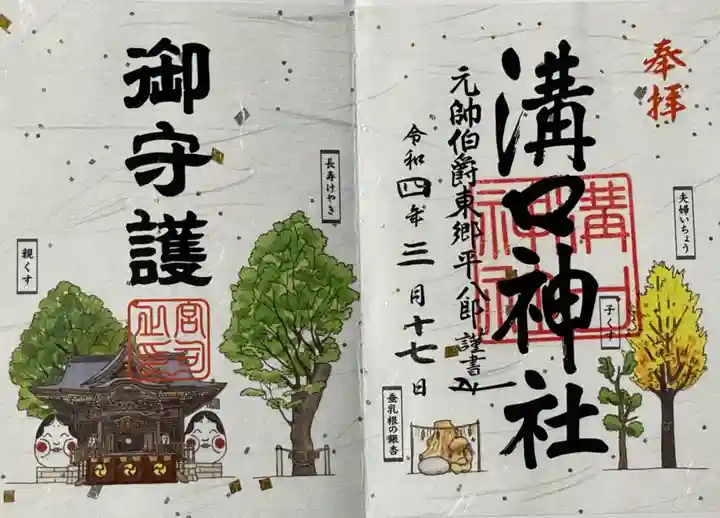 奉拝
溝口神社
元帥伯爵東郷平八郎謹書
令和四年三月十七日
夫婦いちょう
子くす
垂乳根の銀杏
溝口神社
御守護
長寿けやき
親くす
宮司之印